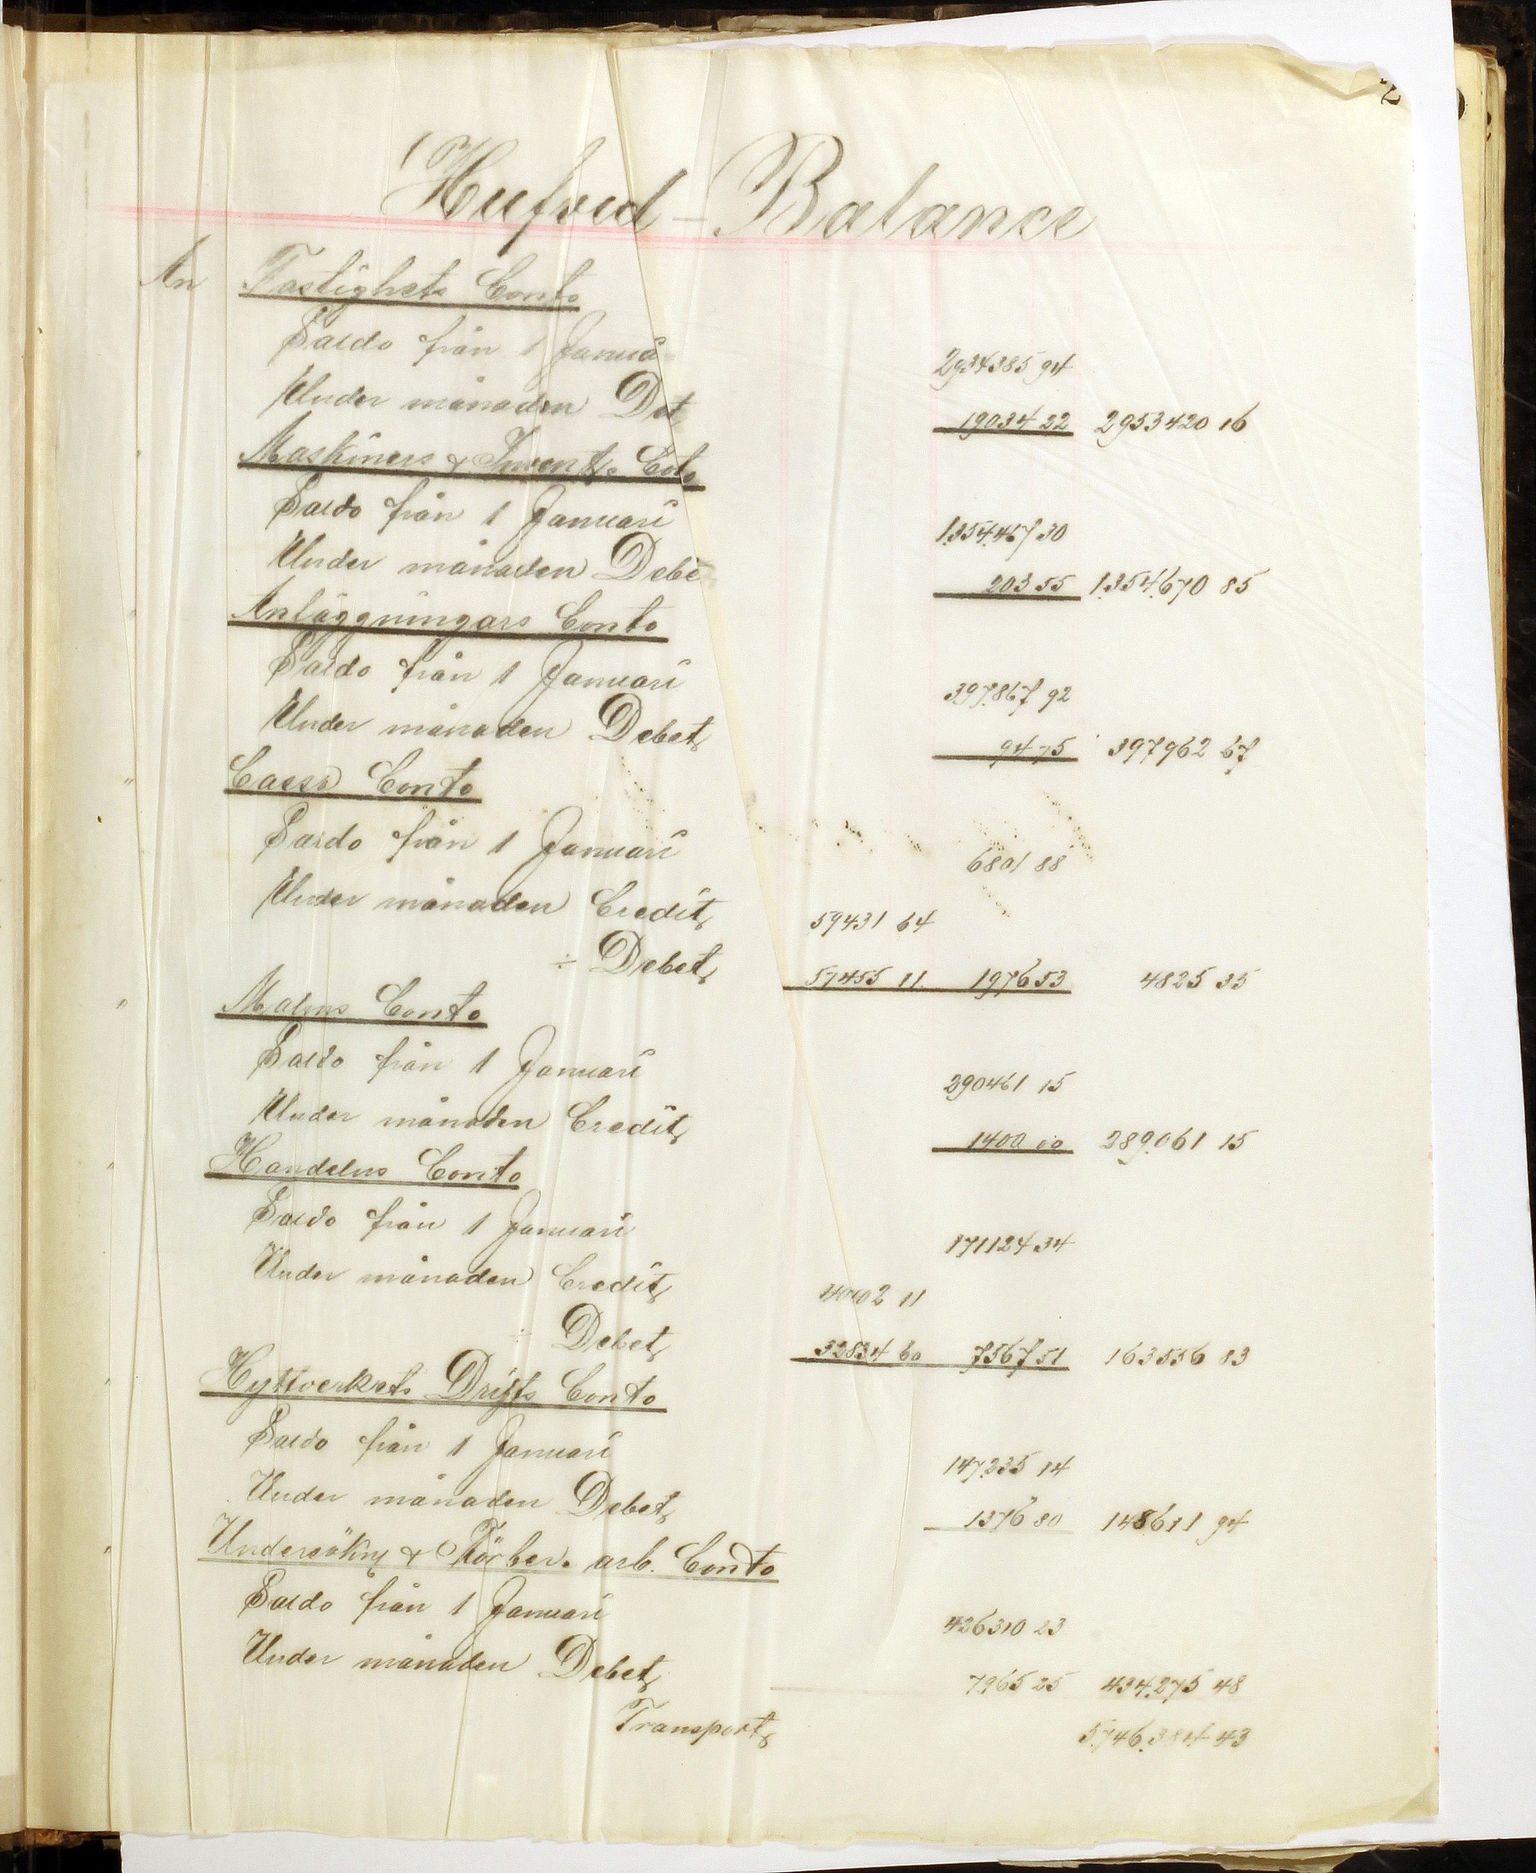 2
Hufvud-Balance
An Fastighets Conto
Saldo från 1 Januar 2934385 94
Under månaden Det 19034 22 2953420 16
" Maskiners & Invent. Cto
Saldo från 1 Januari 1.354.467 30
Under månaden Debe 203 55 1.354.670 85
" Anläggningars Conto
Saldo från 1 Januari 397.867 92
Under månaden Debet 94 75 397962 67
" Cassa Conto
Saldo från 1 Januari 6801 88
Under månaden Credit 59431 64
÷ Debet 57455 11 1976 53 4825 35
" Malms Conto
Saldo från 1 Januari 290461 15
Under månaden Credit 1400 00 289.061 15
" Handelns Conto
Saldo från 1 Januari 171124 34
Under månaden Credit 40402 11
÷ Debet 32834 60 7567 51 163556 83
" Hyttverkets Drifts Conto
Saldo från 1 Januari 147.235 14
Under månaden Debet 1376 80 148611 94
" Undersökng & Förber. arb. Conto
Saldo från 1 Januari 426310 23
Under månaden Debet 7965 25 434.275 48
Transport 5.746.384 43